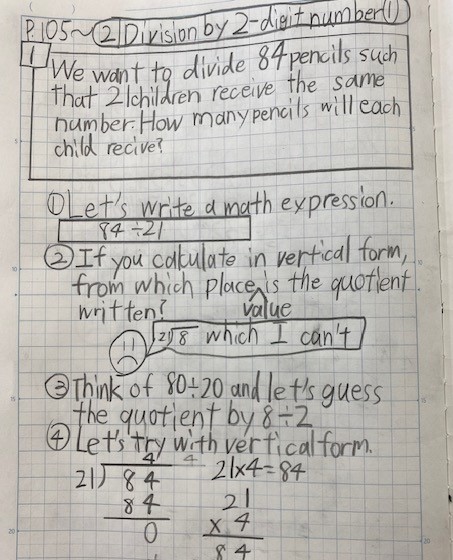 P.105~② Division by 2-digit number(1)
1
We want to divide 84 pencils such
that 21 children receive the same
number. How many pencils will each
child recive?
① Let's write a math expression.
84 ÷ 21
② If you calculate in vertical form,
from which place is the quotient
written? value
21)8 which I can't
③ Think of 80÷20 and let's guess
the quotient by 8÷2
④ Let's try with vertical form.
4 4
21)84 21x4=84
84 21
0 x 4
84